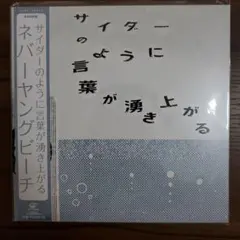 サイダーのように言葉が湧き上がる
ネバーヤングビーチ
サイダー
のように
言葉が湧き上がる